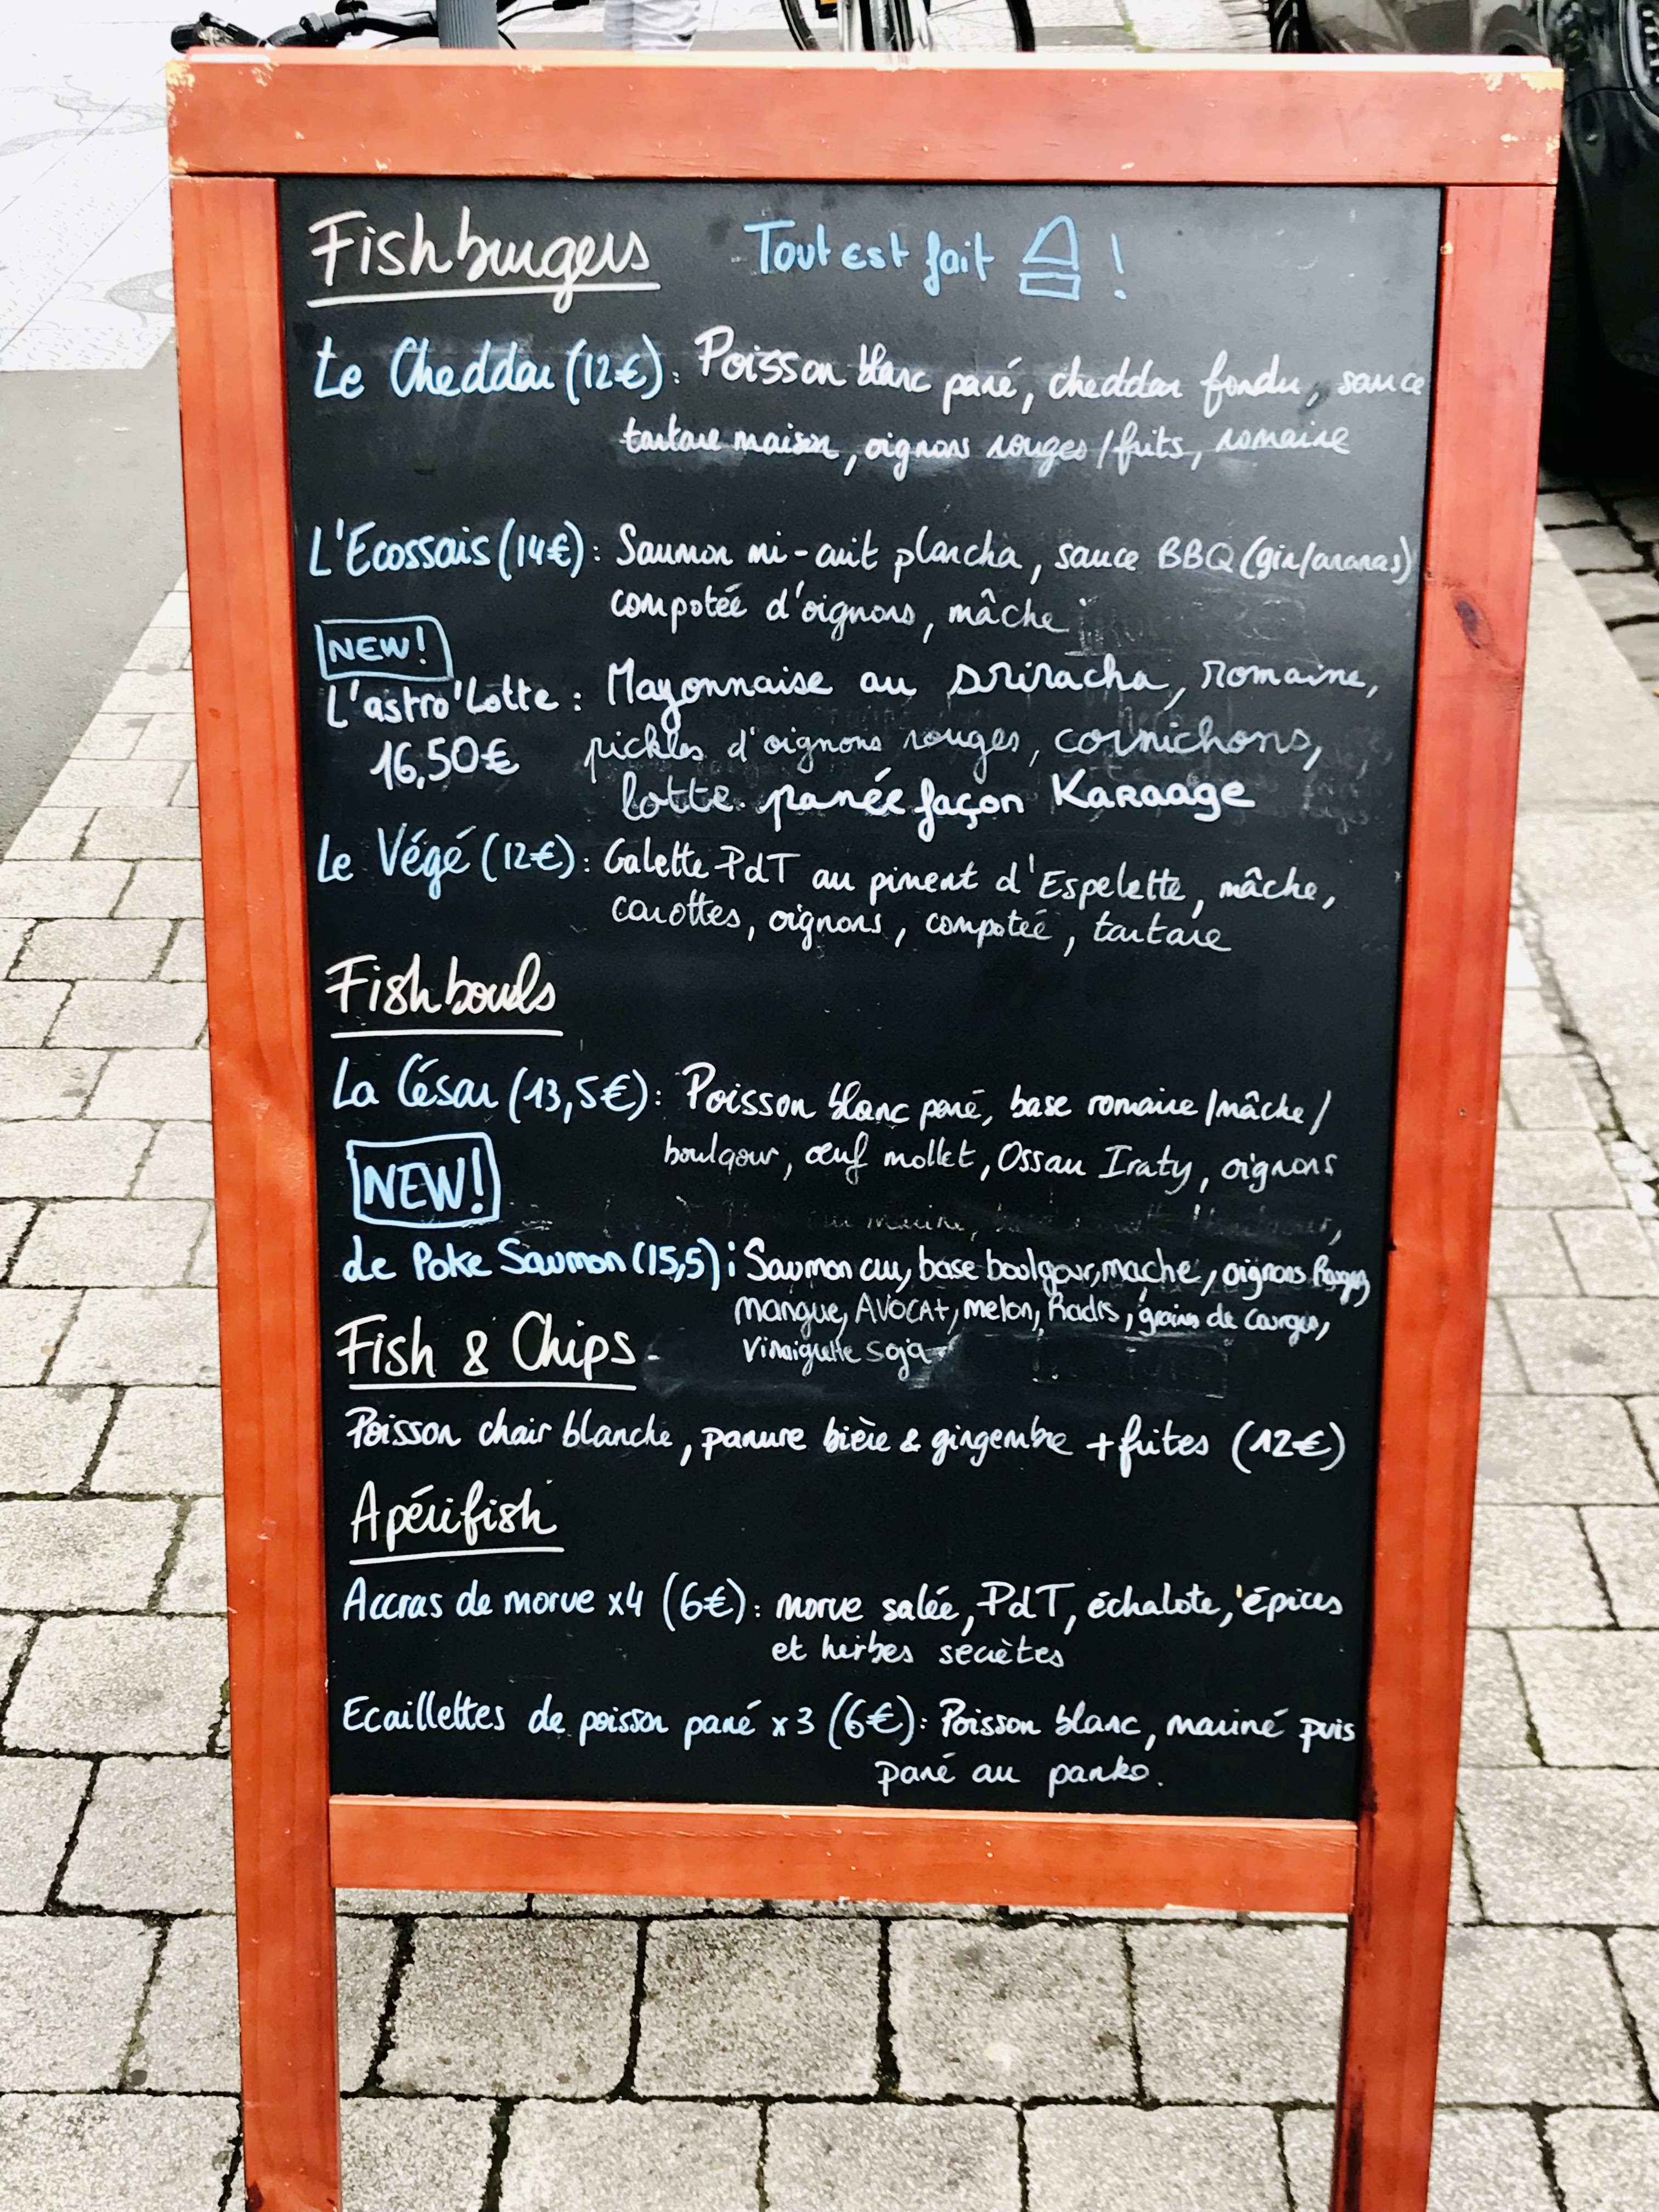 Fishburgers
Tout est fait !
Le Cheddar (12€): Poisson blanc pané, cheddar fondu, sauce
tartare maison, oignons rouges/frits, romaine
L'Ecossais (14€): Saumon mi-cuit plancha, sauce BBQ (gin/ananas)
compotée d'oignons, mâche
NEW!
L'astro'Lotte : Mayonnaise au sriracha, romaine,
16,50€ pickles d'oignons rouges, cornichons,
lotte panée façon Karaage
Le Végé (12€): Galette PdT au piment d'Espelette, mâche,
carottes, oignons, compotée, tartare
Fishbowls
La César (13,5€): Poisson blanc pané, base romaine/mâche/
boulgour, œuf mollet, Ossau Iraty, oignons
NEW!
Le Poke Saumon (15,5): Saumon cru, base boulgour, mache, oignons Rouges,
mangue, AVOCAt, melon, Radis, graines de Courges,
Vinaigrette soja
Fish & Chips
Poisson chair blanche, panure bière & gingembre + frites (12€)
Apérifish
Accras de morue x4 (6€): morue salée, PdT, échalote, épices
et herbes secrètes
Ecaillettes de poisson pané x3 (6€): Poisson blanc, mariné puis
pané au panko.